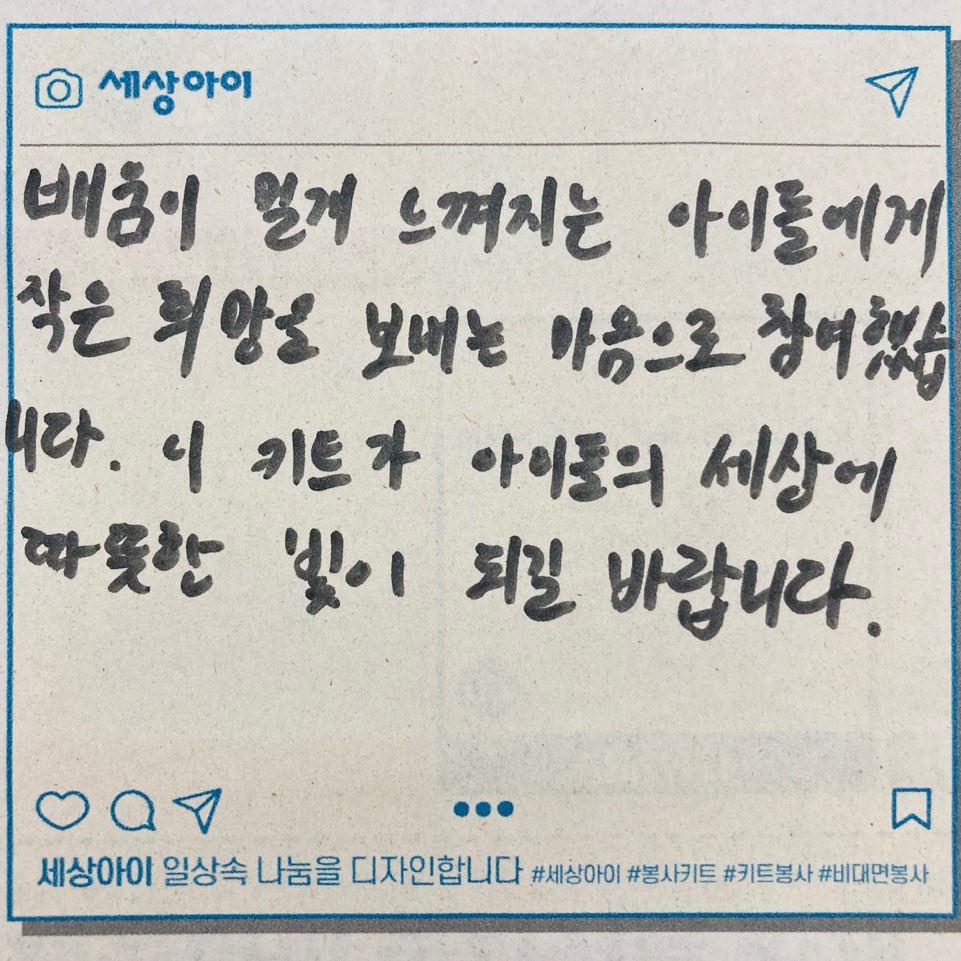 세상아이
배움이 멀게 느껴지는 아이들에게
작은 희망을 보내는 마음으로 참여했습
니다. 이 키트가 아이들의 세상에
따뜻한 빛이 되길 바랍니다.
세상아이 일상속 나눔을 디자인합니다 #세상아이 #봉사키트 #키트봉사 #비대면봉사